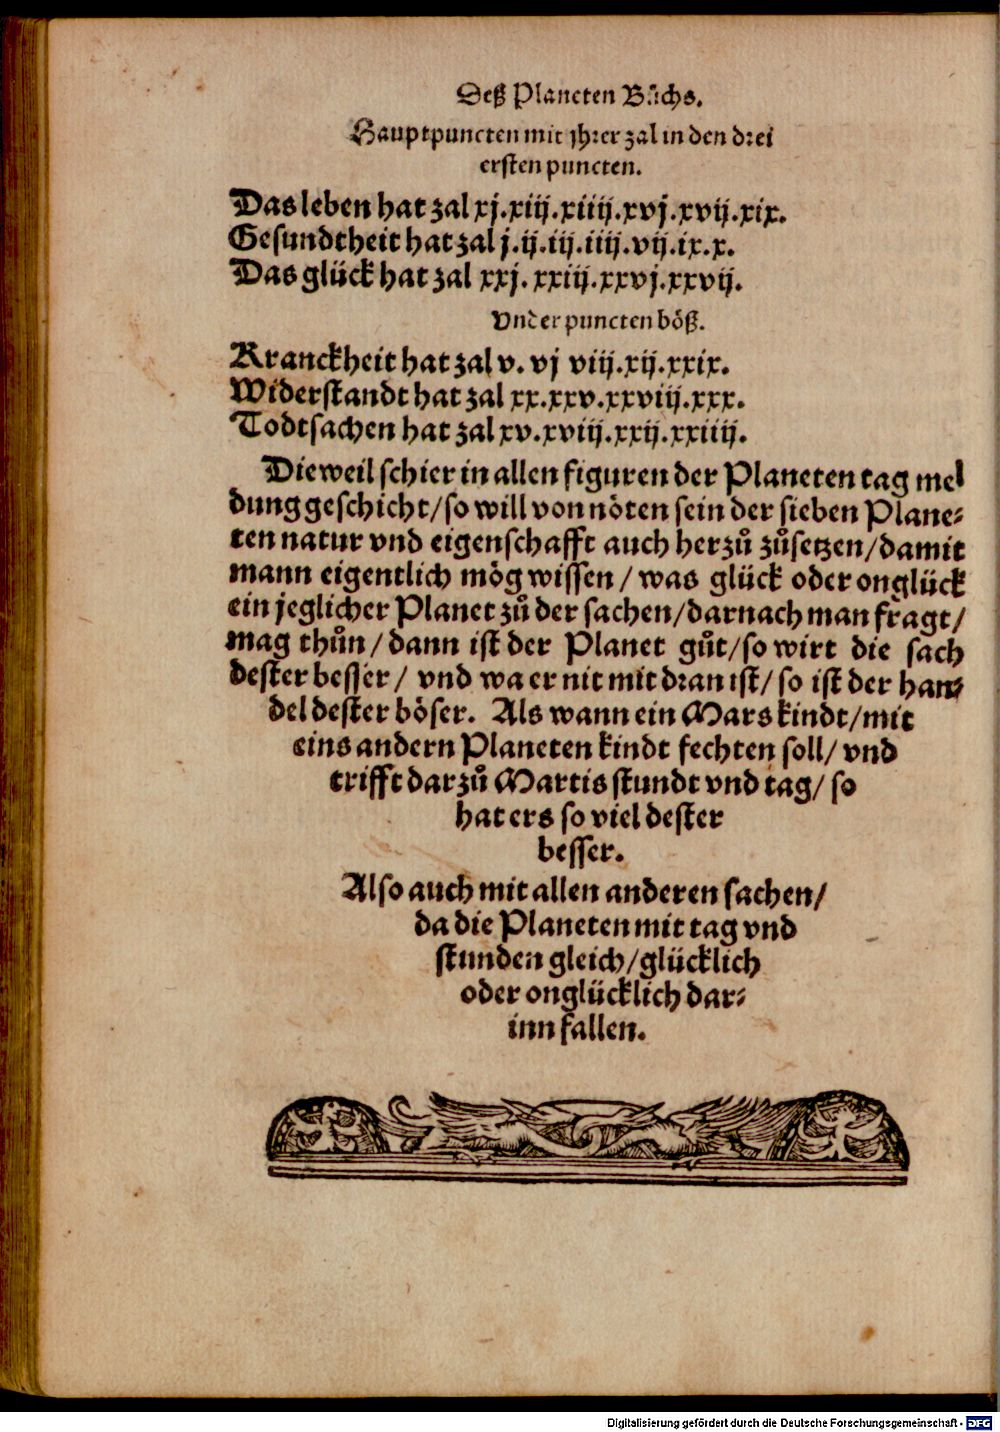 Deß Planeten Bůchs.
Hauptpuncten mit jhrer zal in den drei
ersten puncten.
Das leben hat zal xj.xiij.xiiij.xvj.xvij.xix.
Gesundtheit hat zal j.ij.iij.iiij.vij.ix.x.
Das glück hat zal xxj.xxiij.xxvj.xxvij.
Vnder puncten böß.
Kranckheit hat zal v. vj viij.xij.xxix.
Widerstandt hat zal xx.xxv.xxviij.xxx.
Todtsachen hat zal xv.xviij.xxij.xxiiij.
Dieweil schier in allen figuren der Planeten tag mel
dung geschicht/so will von nöten sein der sieben Plane-
ten natur vnd eigenschafft auch herzů zůsetzen/damit
mann eigentlich mög wissen/ was glück oder onglück
ein jeglicher Planet zů der sachen/darnach man fragt/
mag thůn/ dann ist der Planet gůt/so wirt die sach
dester besser/ vnd wa er nit mit dran ist/ so ist der han-
del dester böser. Als wann ein Mars kindt/mit
eins andern Planeten kindt fechten soll/ vnd
trifft darzů Martis stundt vnd tag/ so
hat ers so viel dester
besser.
Also auch mit allen anderen sachen/
da die Planeten mit tag vnd
stunden gleich/glücklich
oder onglücklich dar-
inn fallen.
Digitalisierung gefördert durch die Deutsche Forschungsgemeinschaft - DFG